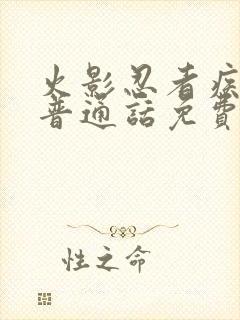 火影忍者疾
普通話免費
性之命